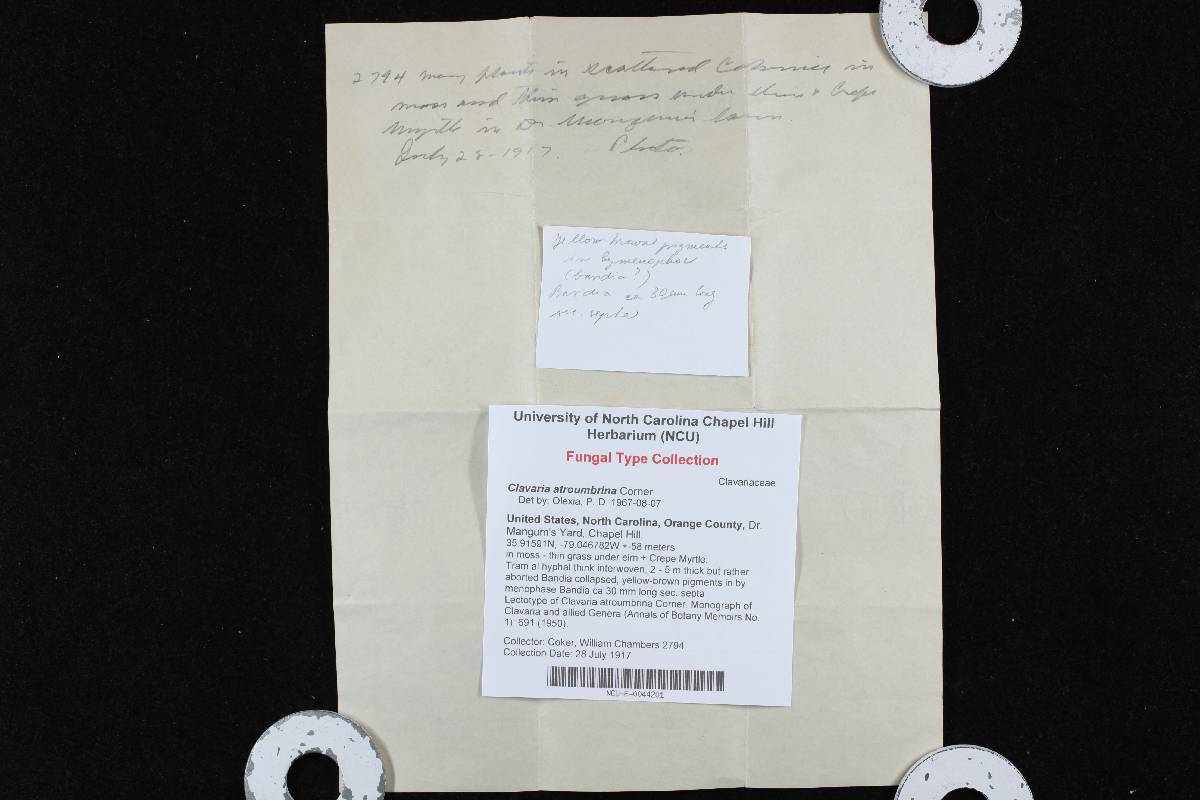 2794 many plants in scattered colonies in
moss and thin grass under elm & Crepe
Myrtle in Dr Mangum's lawn.
July 28-1917. Photo.
Yellow-brown pigments
in hymenophor
(basidia?)
Basidia ca 30 µm long
sec. septa
University of North Carolina Chapel Hill
Herbarium (NCU)
Fungal Type Collection
Clavariaceae
Clavaria atroumbrina Corner
Det by: Olexia, P. D. 1967-08-07
United States, North Carolina, Orange County, Dr.
Mangum's Yard, Chapel Hill.
35.91591N, -79.046782W +-58 meters
in moss - thin grass under elm + Crepe Myrtle.
Tram al hyphal think interwoven, 2 - 5 m thick but rather
aborted Bandia collapsed, yellow-brown pigments in by
menophase Bandia ca 30 mm long sec. septa
Lectotype of Clavaria atroumbrina Corner. Monograph of
Clavaria and allied Genera (Annals of Botany Memoirs No.
1): 691 (1950).
Collector: Coker, William Chambers 2794
Collection Date: 28 July 1917
NCU-F-0044201